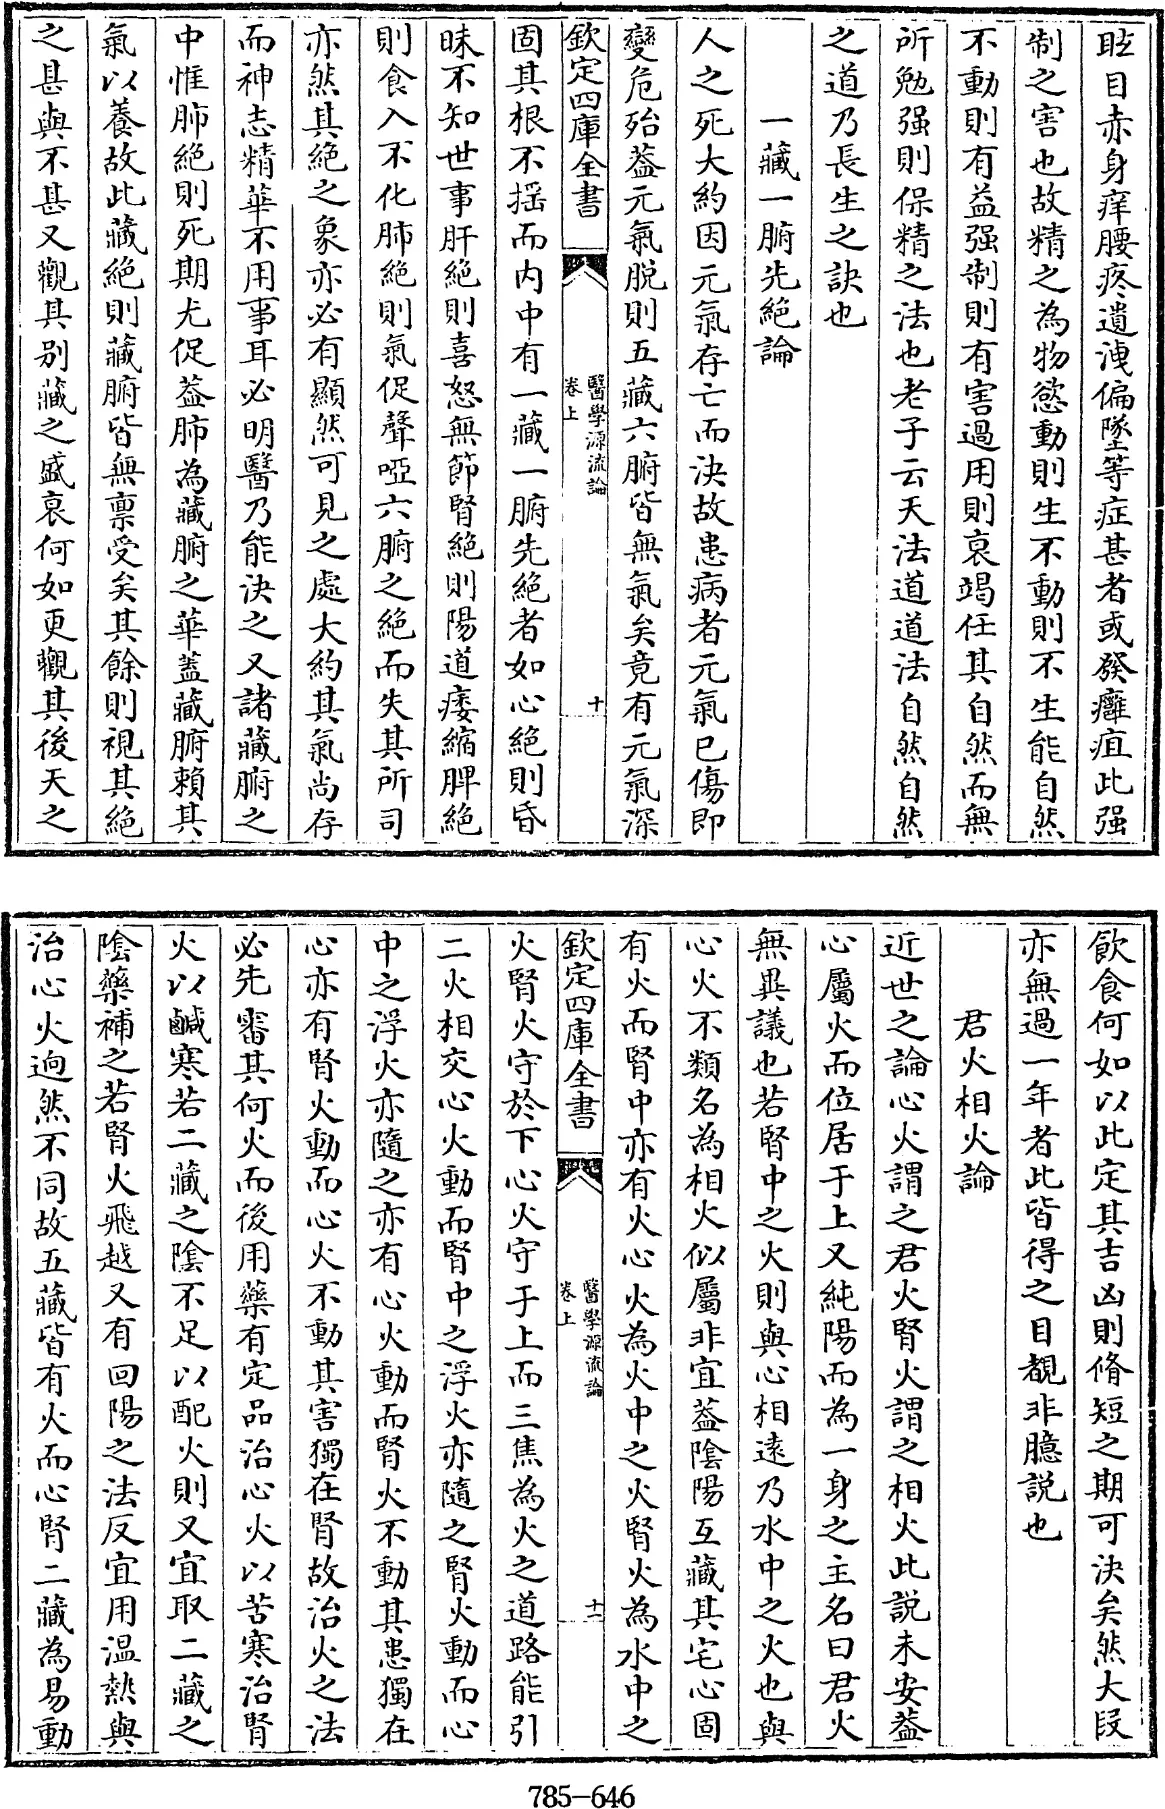 眩目赤身痒腰疼遺洩偏墜等症甚者或發癰疽此强
制之害也故精之為物慾動則生不動則不生能自然
不動則有益强制則有害過用則衰竭任其自然而無
所勉强則保精之法也老子云天法道道法自然自然
之道乃長生之訣也
一藏一腑先絕論
人之死大約因元氣存亡而決故患病者元氣已傷即
變危殆蓋元氣脱則五藏六腑皆無氣矣竟有元氣深
欽定四庫全書
醫學源流論
卷上
十
固其根不摇而内中有一藏一腑先絕者如心絕則昏
昧不知世事肝絕則喜怒無節腎絕則陽道痿縮脾絕
則食入不化肺絕則氣促聲啞六腑之絕而失其所司
亦然其絕之象亦必有顯然可見之處大約其氣尚存
而神志精華不用事耳必明醫乃能決之又諸藏腑之
中惟肺絕則死期尤促蓋肺為藏腑之華蓋藏腑賴其
氣以養故此藏絕則藏腑皆無禀受矣其餘則視其絕
之甚與不甚又觀其别藏之盛衰何如更觀其後天之
飲食何如以此定其吉凶則脩短之期可決矣然大段
亦無過一年者此皆得之目覩非臆説也
君火相火論
近世之論心火謂之君火腎火謂之相火此説未安蓋
心屬火而位居于上又純陽而為一身之主名曰君火
無異議也若腎中之火則與心相遠乃水中之火也與
心火不類名為相火似屬非宜蓋陰陽互藏其宅心固
有火而腎中亦有火心火為火中之火腎火為水中之
欽定四庫全書
醫學源流論
卷上
十一
火腎火守於下心火守于上而三焦為火之道路能引
二火相交心火動而腎中之浮火亦隨之腎火動而心
中之浮火亦隨之亦有心火動而腎火不動其患獨在
心亦有腎火動而心火不動其害獨在腎故治火之法
必先審其何火而後用藥有定品治心火以苦寒治腎
火以鹹寒若二藏之陰不足以配火則又宜取二藏之
陰藥補之若腎火飛越又有回陽之法反宜用温熱與
治心火逈然不同故五藏皆有火而心腎二藏為易動
785-646